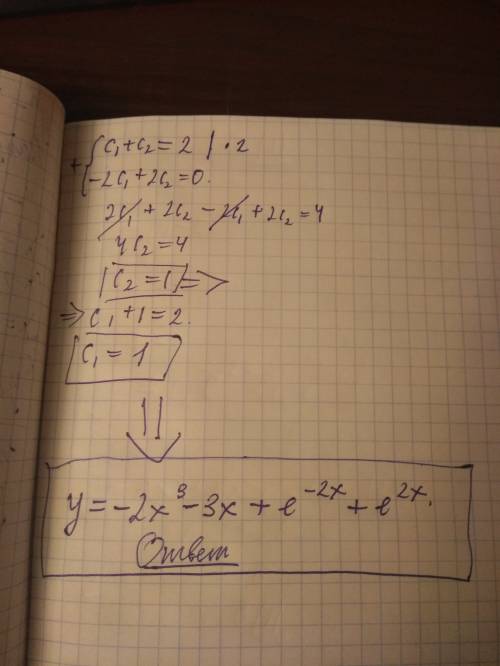 +{ c₁+c₂=2 | · 2
-2c₁+2c₂=0.
2c₁ + 2c₂ - 2c₁ + 2c₂ = 4
4c₂ = 4
c₂ = 1 =>
=> c₁+1=2.
c₁ = 1
⇓
y = -2x³ - 3x + e^{-2x} + e^{2x}.
Ответ